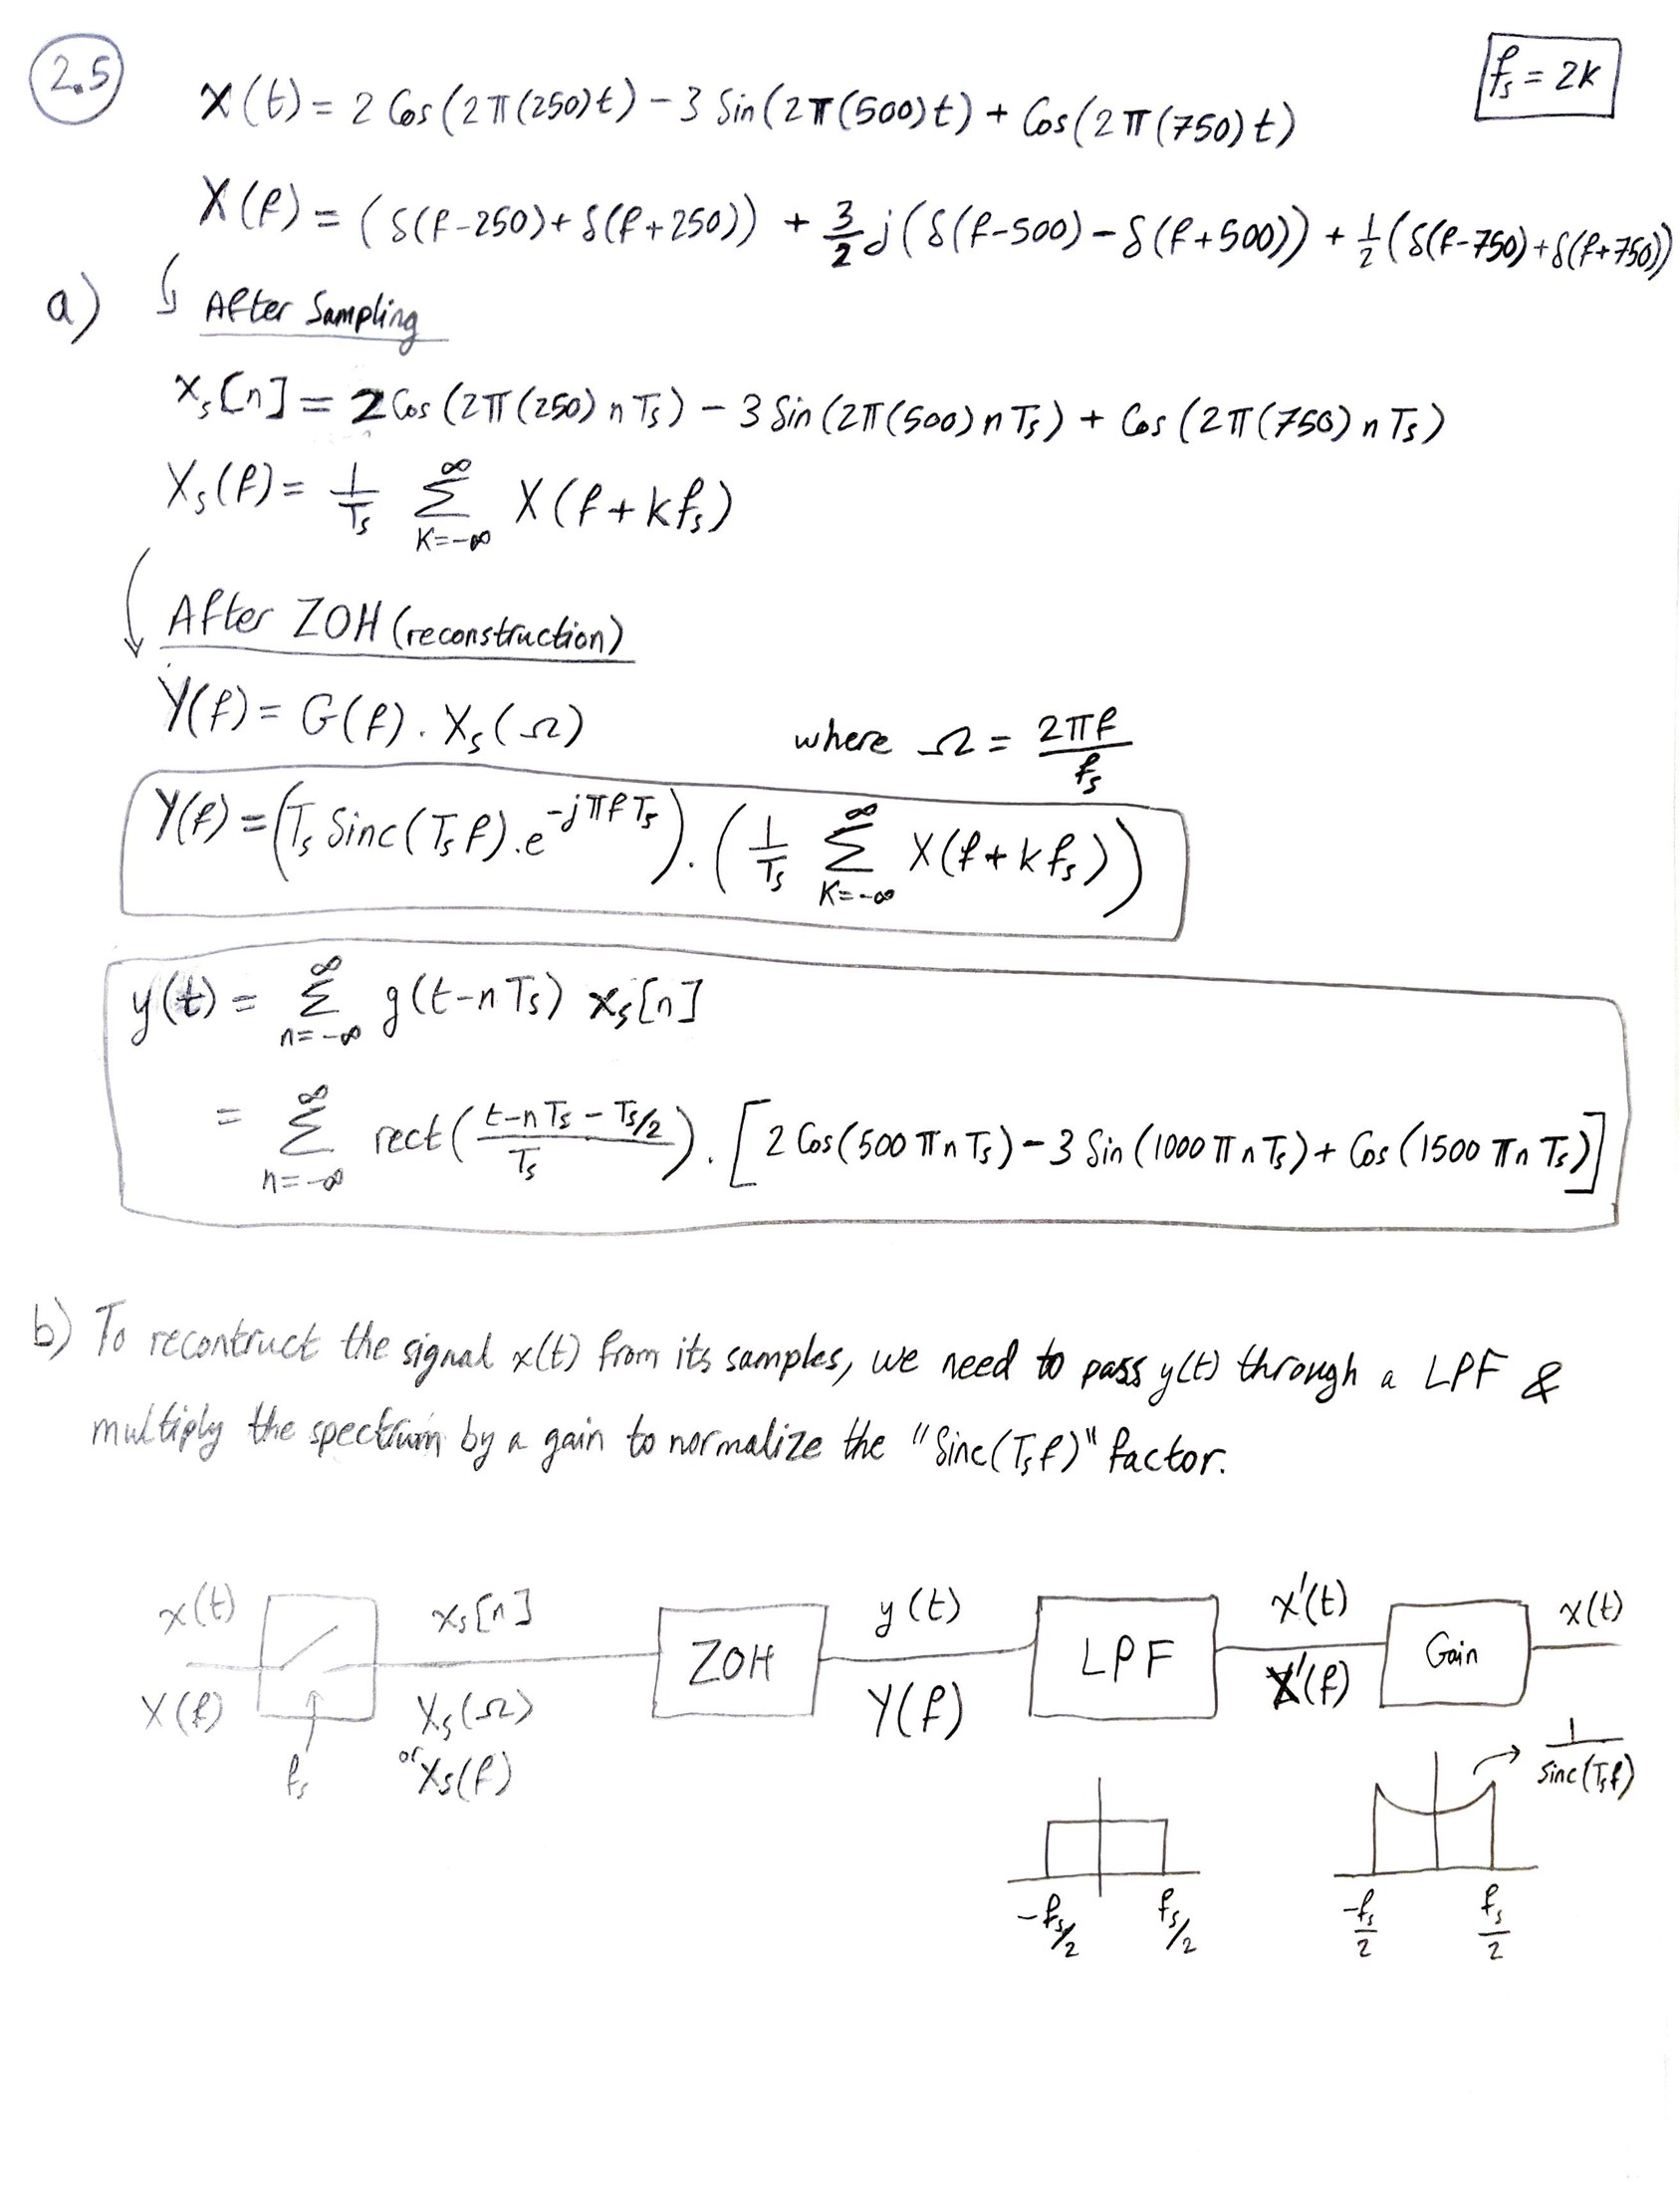 2.5
x(t) = 2 Cos(2π(250)t) - 3 Sin(2π(500)t) + Cos(2π(750)t)
fs = 2K
X(f) = (δ(f-250)+δ(f+250)) + 3/2 j(δ(f-500) - δ(f+500)) + 1/2(δ(f-750)+δ(f+750))
a) After Sampling
xs[n] = 2 Cos(2π(250)nTs) - 3 Sin(2π(500)nTs) + Cos(2π(750)nTs)
Xs(f) = 1/Ts Σ K=-∞ ∞ X(f+kfs)
After ZOH (reconstruction)
Y(f) = G(f) . Xs(Ω) where Ω = 2πf/fs
Y(f) = (Ts Sinc(Ts f) . e^-jπfTs) . (1/Ts Σ K=-∞ ∞ X(f+kfs))
y(t) = Σ n=-∞ ∞ g(t-nTs) xs[n]
= Σ n=-∞ ∞ rect((t-nTs-Ts/2)/Ts) . [2 Cos(500πnTs) - 3 Sin(1000πnTs) + Cos(1500πnTs)]
b) To recontruct the signal x(t) from its samples, we need to pass y(t) through a LPF &
multiply the spectrum by a gain to normalize the "Sinc(Tsf)" factor.
x(t) xs[n] y(t) x'(t) x(t)
ZOH LPF Gain
X(f) Xs(Ω) Y(f) X'(f)
fs or Xs(f) 1/sinc(Tsf)
-fs/2 fs/2 -fs/2 fs/2